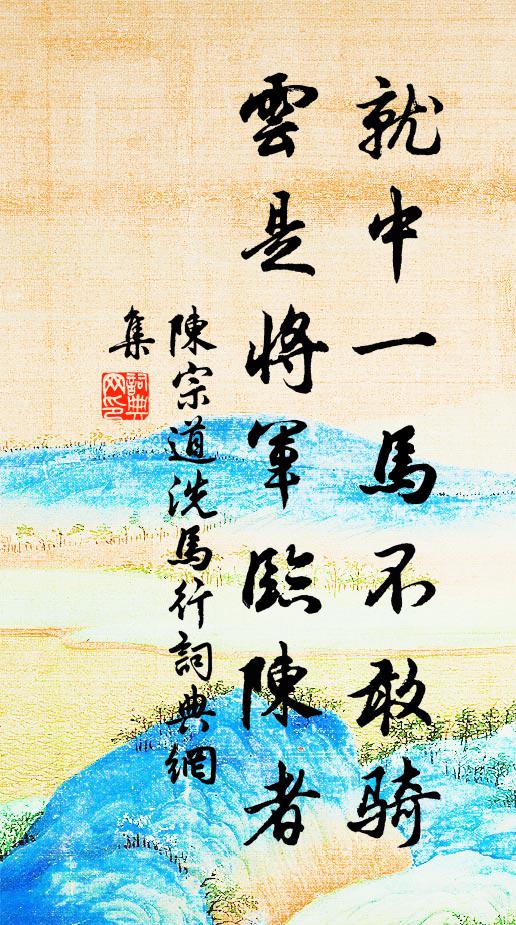 就中一馬不敢騎
雲是將軍臨陳者
陳宗道洗馬行詞典網
集
詞典網印